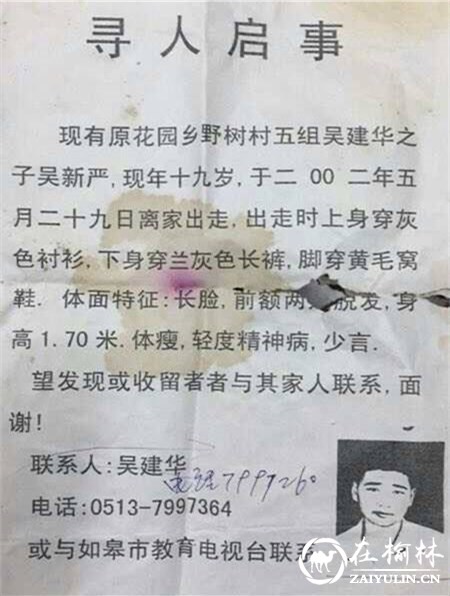 寻人启事
现有原花园乡野树村五组吴建华之
子吴新严,现年十九岁,于二00二年五
月二十九日离家出走,出走时上身穿灰
色衬衫,下身穿兰灰色长裤,脚穿黄毛窝
鞋.体面特征:长脸,前额两 脱发,身
高1.70米.体瘦,轻度精神病,少言.
望发现或收留者者与其家人联系,面
谢!
联系人:吴建华
799726
电话:0513-7997364
或与如皋市教育电视台联系
在榆林
ZAIYULIN.CN